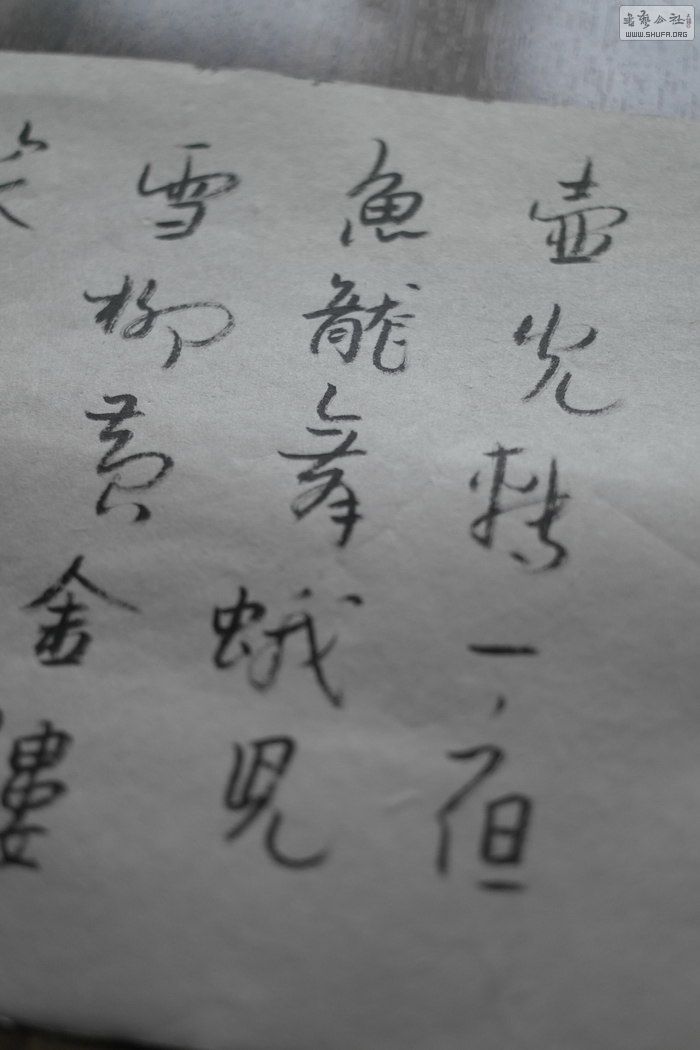 壺光轉一夜
魚龍舞蛾兒
雪柳黃金縷
笑
書藝公社
WWW.SHUFA.ORG